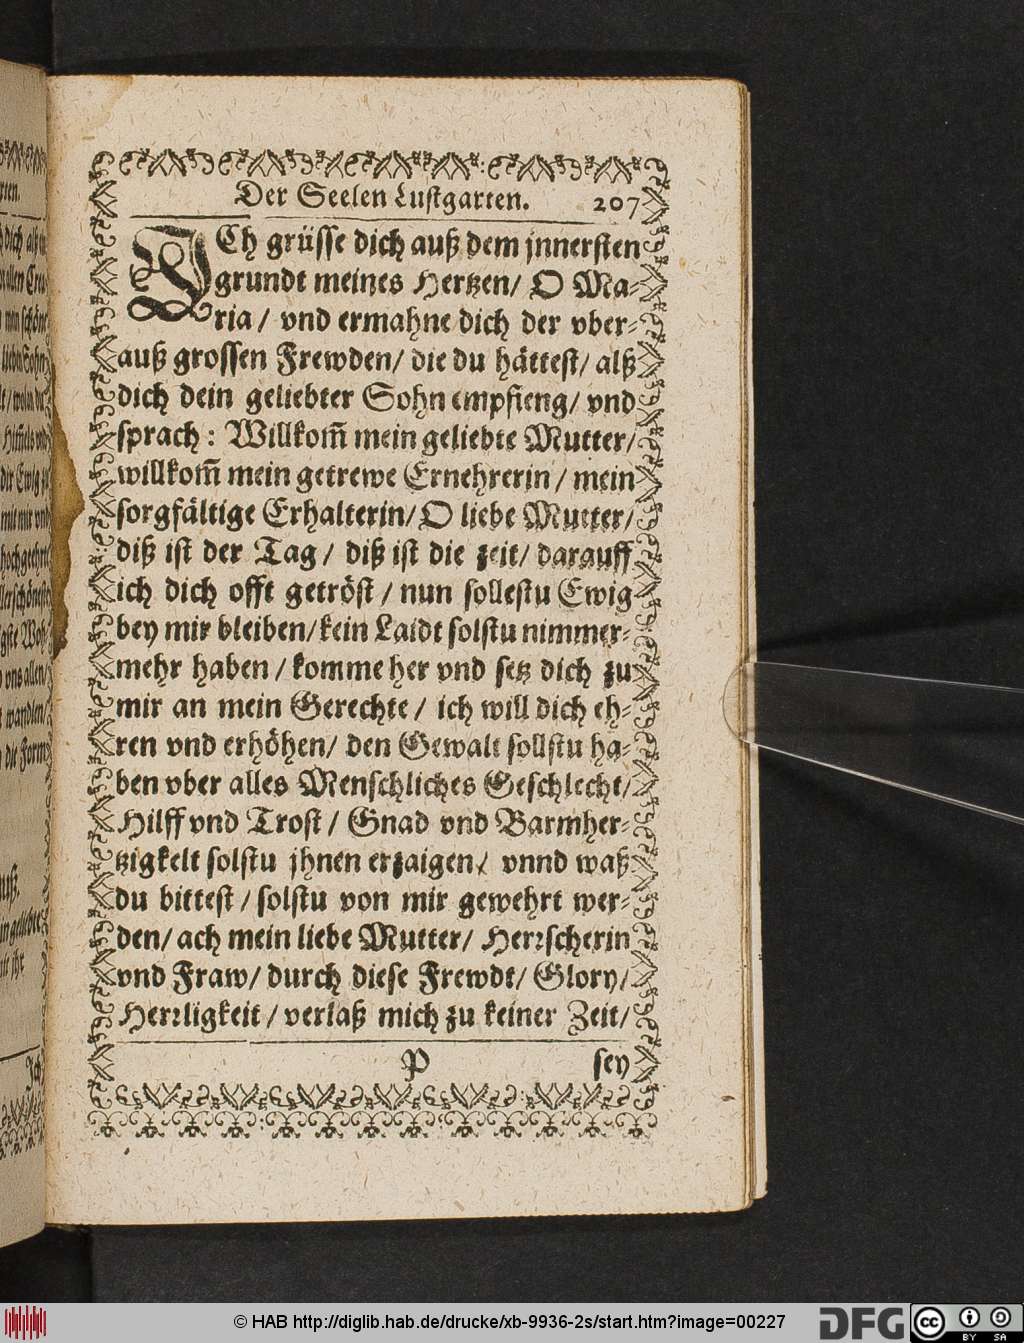 Der Seelen Lustgarten. 207
ICh grüsse dich auß dem jnnersten
grundt meines Hertzen/ O Ma-
ria / vnd ermahne dich der vber-
auß grossen Frewden/ die du hättest/ alß
dich dein geliebter Sohn empfieng/ vnd
sprach: Willkom̃ mein geliebte Mutter/
willkom̃ mein getrewe Ernehrerin / mein
sorgfältige Erhalterin/ O liebe Mutter/
diß ist der Tag / diß ist die zeit/ darauff
ich dich offt getröst / nun sollestu Ewig
bey mir bleiben/ kein Laidt solstu nimmer-
mehr haben / komme her vnd setz dich zu
mir an mein Gerechte / ich will dich eh-
ren vnd erhöhen/ den Gewalt sollstu ha-
ben vber alles Menschliches Geschlecht/
Hilff vnd Trost / Gnad vnd Barmher-
tzigkeit solstu jhnen erzaigen/ vnnd waß
du bittest / solstu von mir gewehrt wer-
den/ ach mein liebe Mutter/ Herꝛscherin
vnd Fraw/ durch diese Frewdt/ Glory/
Herꝛligkeit / verlaß mich zu keiner Zeit/
P sey
© HAB http://diglib.hab.de/drucke/xb-9936-2s/start.htm?image=00227
DFG
cc BY SA